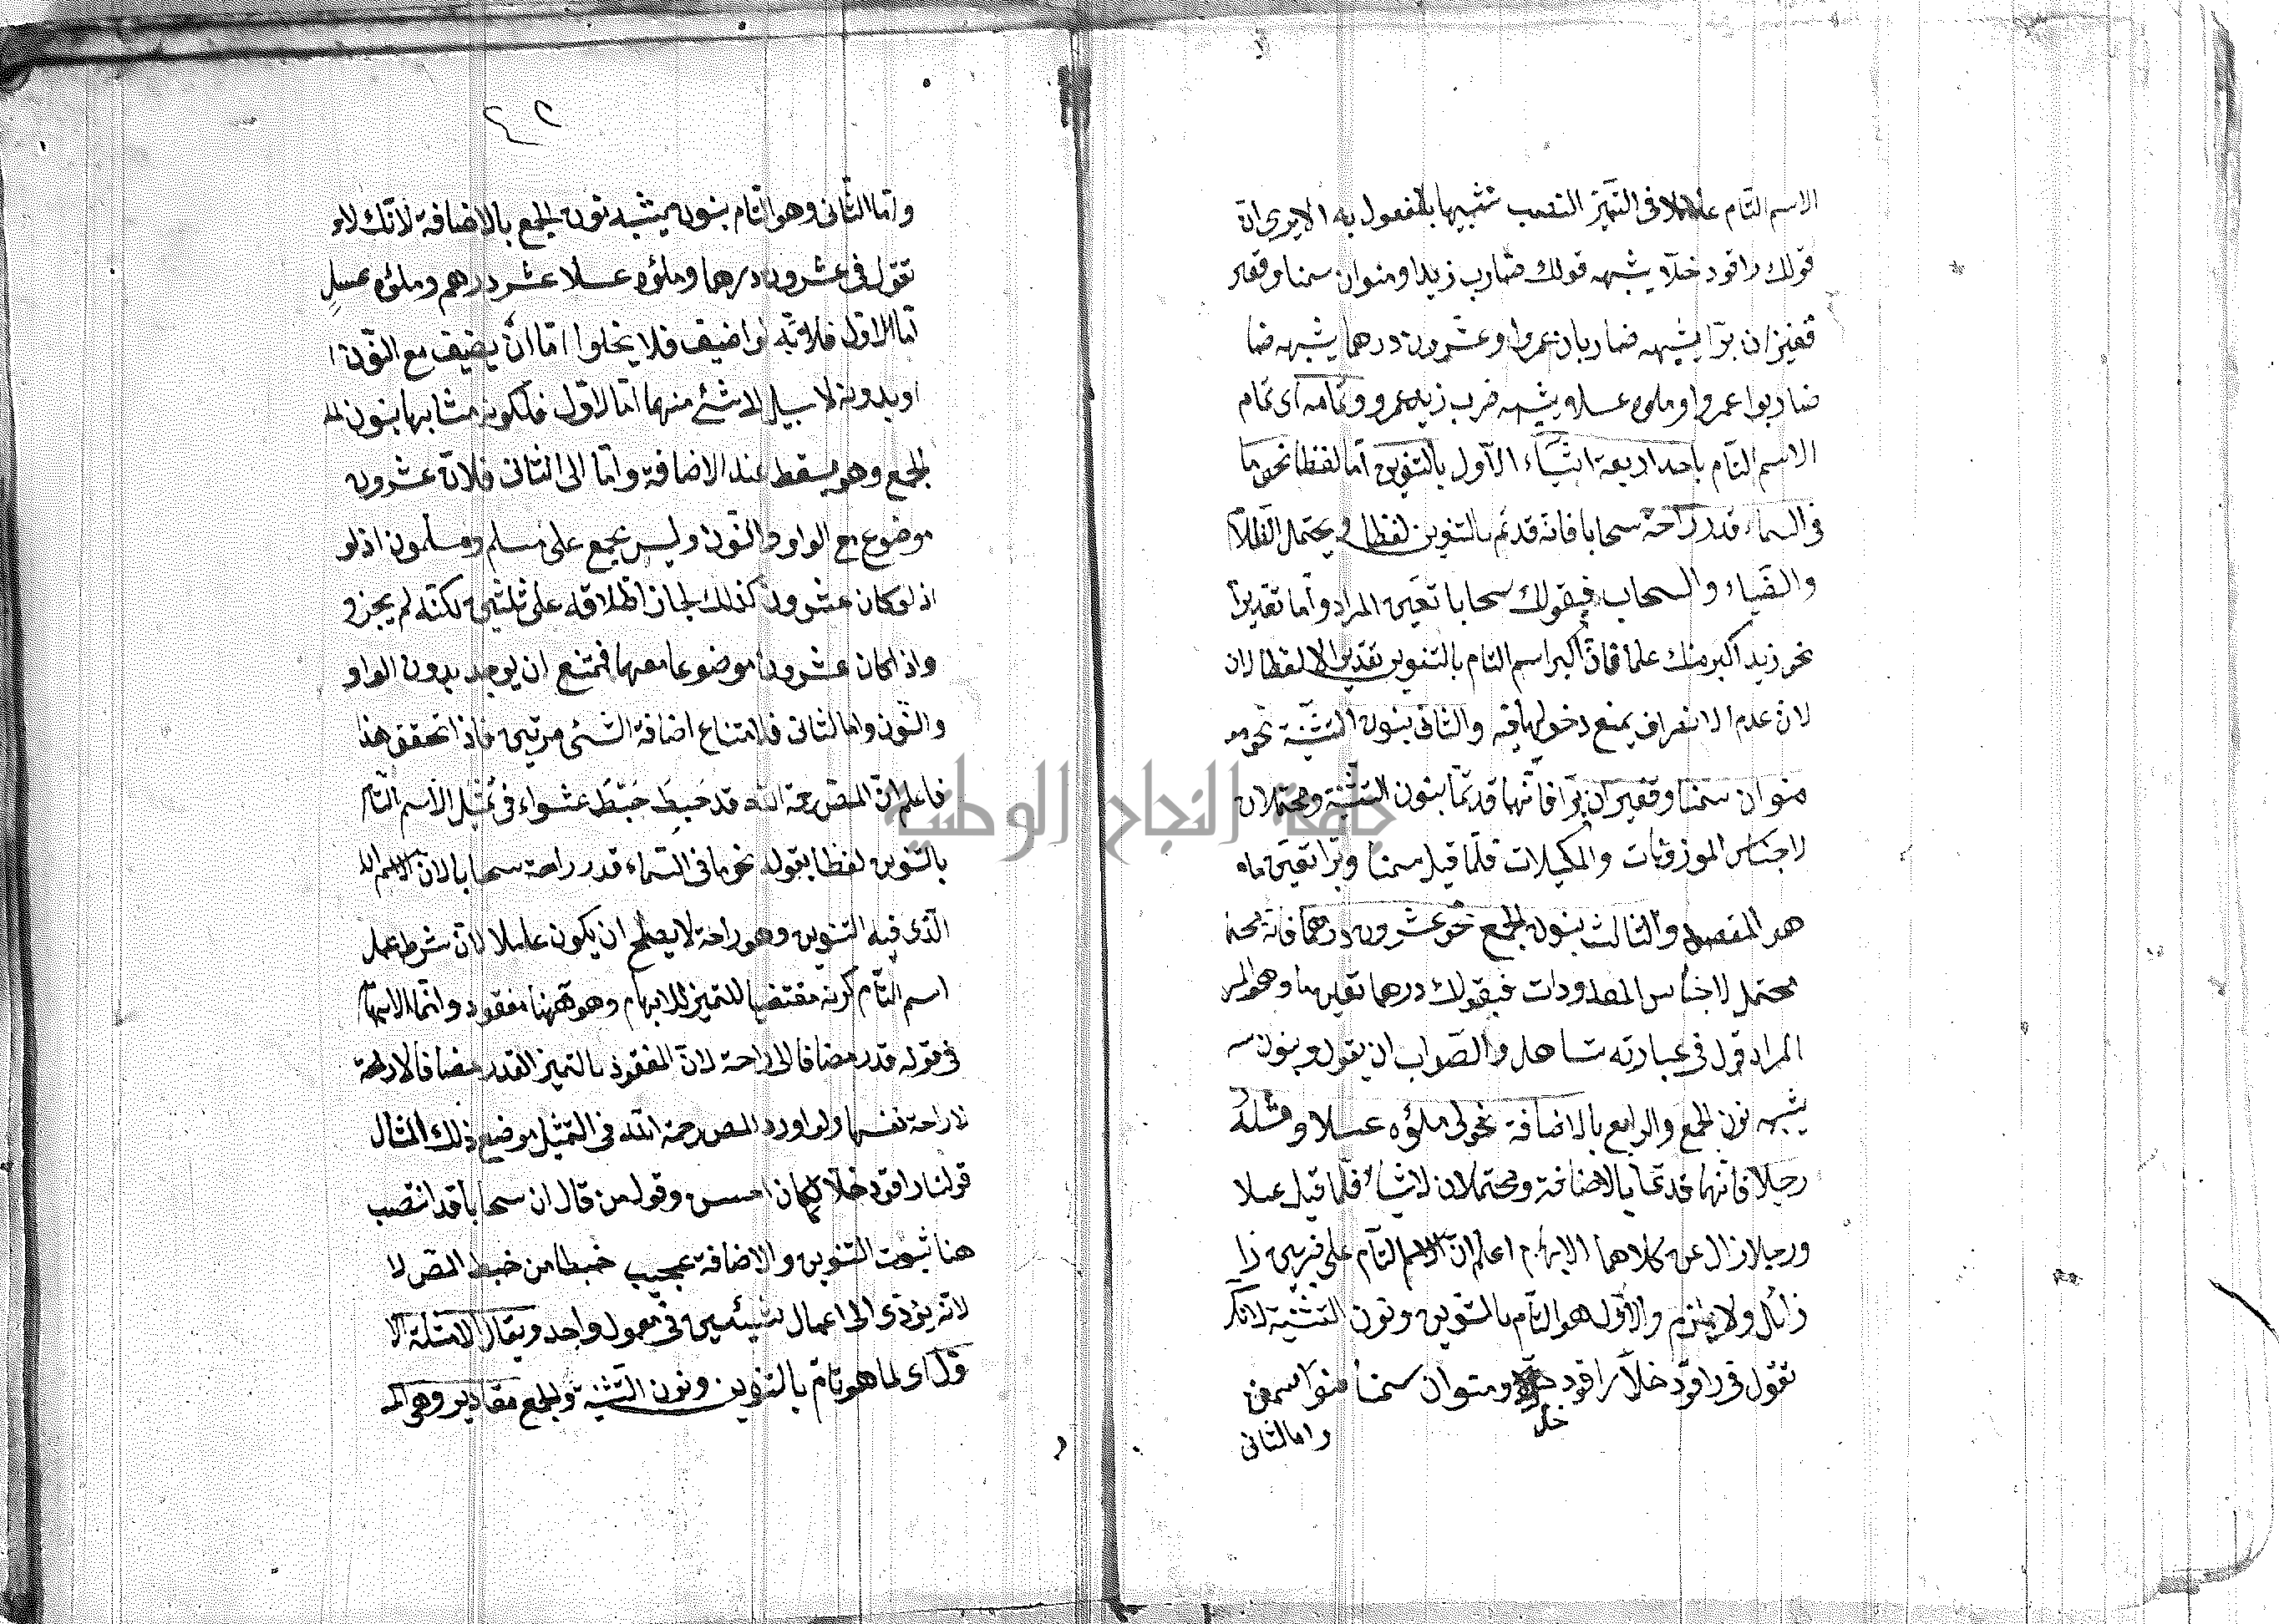 الاسم التام عاملا فى التميز النصب تشبيها بالمفعول به الا يرى ان
قولك راقود خلا يشبه قولك ضارب زيدا ومنوان سمنا وقفير
قفيزان برا يشبه ضاربان عمروا وعشرون درهما يشبه ضا
ضاربوا عمروا وملؤه عسلا يشبه ضرب زيد عمرو وتمامه اى تمام
الاسم التام باحد اربعة اشياء الاول بالتنوين اما لفظا نحو ما
فى السماء قدر راحة سحابا فانه قد تم بالتنوين لفظا ويحتمل
والضياء والسحاب فبقولك سحابا تعين المراد واما تقديرا
نحو زيد اكبر منك علما فان اكبر اسم التام بالتنوين تقديرا لا لفظا لان
لان عدم الانصراف يمنع دخولها فيه والثانى بنون التثنية نحو مو
منوان سمنا وقفيزان برا فانهما قد تما بنون التثنية ومحتملان
لاجناس الموزونات والمكيلات فلما قيل سمنا وبرا تعين ما
هو المقصود والثالث بنون الجمع نحو عشرون درهما فانه يحتمـ
محتمل لاجناس المعدودات فبقولك درهما تعين ما هو المر
المراد قول فى عبارته تساهل والصواب ان يقول وبنون
يشبه نون الجمع والرابع بالاضافة نحو لى ملؤه عسلا ومثله
رجلا فانهما قد تما بالاضافة ومحتملان لاشياء فلما قيل عسلا
ورجلا زال عن كلاهما الابهام اعلم ان الاسم التام على ضربين زا
زائل ولازم والاول هو التام بالتنوين ونون التثنية لانك
تقول فى راقود خلا راقود خل ومنوان سمنا منوا سمن
خل
واما الثانى
٤٢
واما الثانى وهو التام بنون يشبه نون الجمع بالاضافة لانك لا
تقول فى عشرون درهما وملؤه عسلا عشر درهم وملؤه عسل
اما الاول فلانه لو اضيف فلا يخلوا اما ان يضيف مع النون ا
او بدونه لا سبيل لاشئ منهما اما الاول فلكونه مشابها بنون
الجمع وهو يسقط عند الاضافة واما الى الثانى فلان عشرون
موضوع مع الواو والنون وليس بجمع على مسلم ومسلمون اذ لو
اذ لو كان عشرون كذلك لجاز اطلاقه على ثلثين لكنه لم يجز و
واذا كان عشرون موضوعا معهما فمتنع ان يوجد بدون الواو
والنون واما الثانى فلامتناع اضافة الشئ مرتين فاذا تحقق هذا
فاعلم ان المص رحمة الله قد خبط خبط عشواء فى تمثيل الاسم التام
بالتنوين لفظا بقوله نحو ما فى السماء قدر راحة سحابا لان الاسم
الذى فيه التنوين وهو راحة لا يصلح ان يكون عاملا لان شرط عمل
اسم التام كونه مقتضيا للتميز للابهام وهو ههنا مفقود وانما الابهام
فى قوله قدر مضافا الى راحة لان المقصود بالتميز القدر مضافا لا راحة
لا راحة نفسها ولو اورد المص رحمة الله فى التمثيل موضع ذلك المثال
قولنا راقود خلا لكان احسن وقول من قال ان سحابا قد انتصب
هنا بثبوت التنوين والاضافة عجيب خبطا من خبط المص لا
لانه يؤدى الى اعمال شيئين فى معمول واحد ويقال الامثلة
قول اى لما هو تام بالتنوين ونون التثنية والجمع مقادير وهى المـ
جامعة النجاح الوطنية